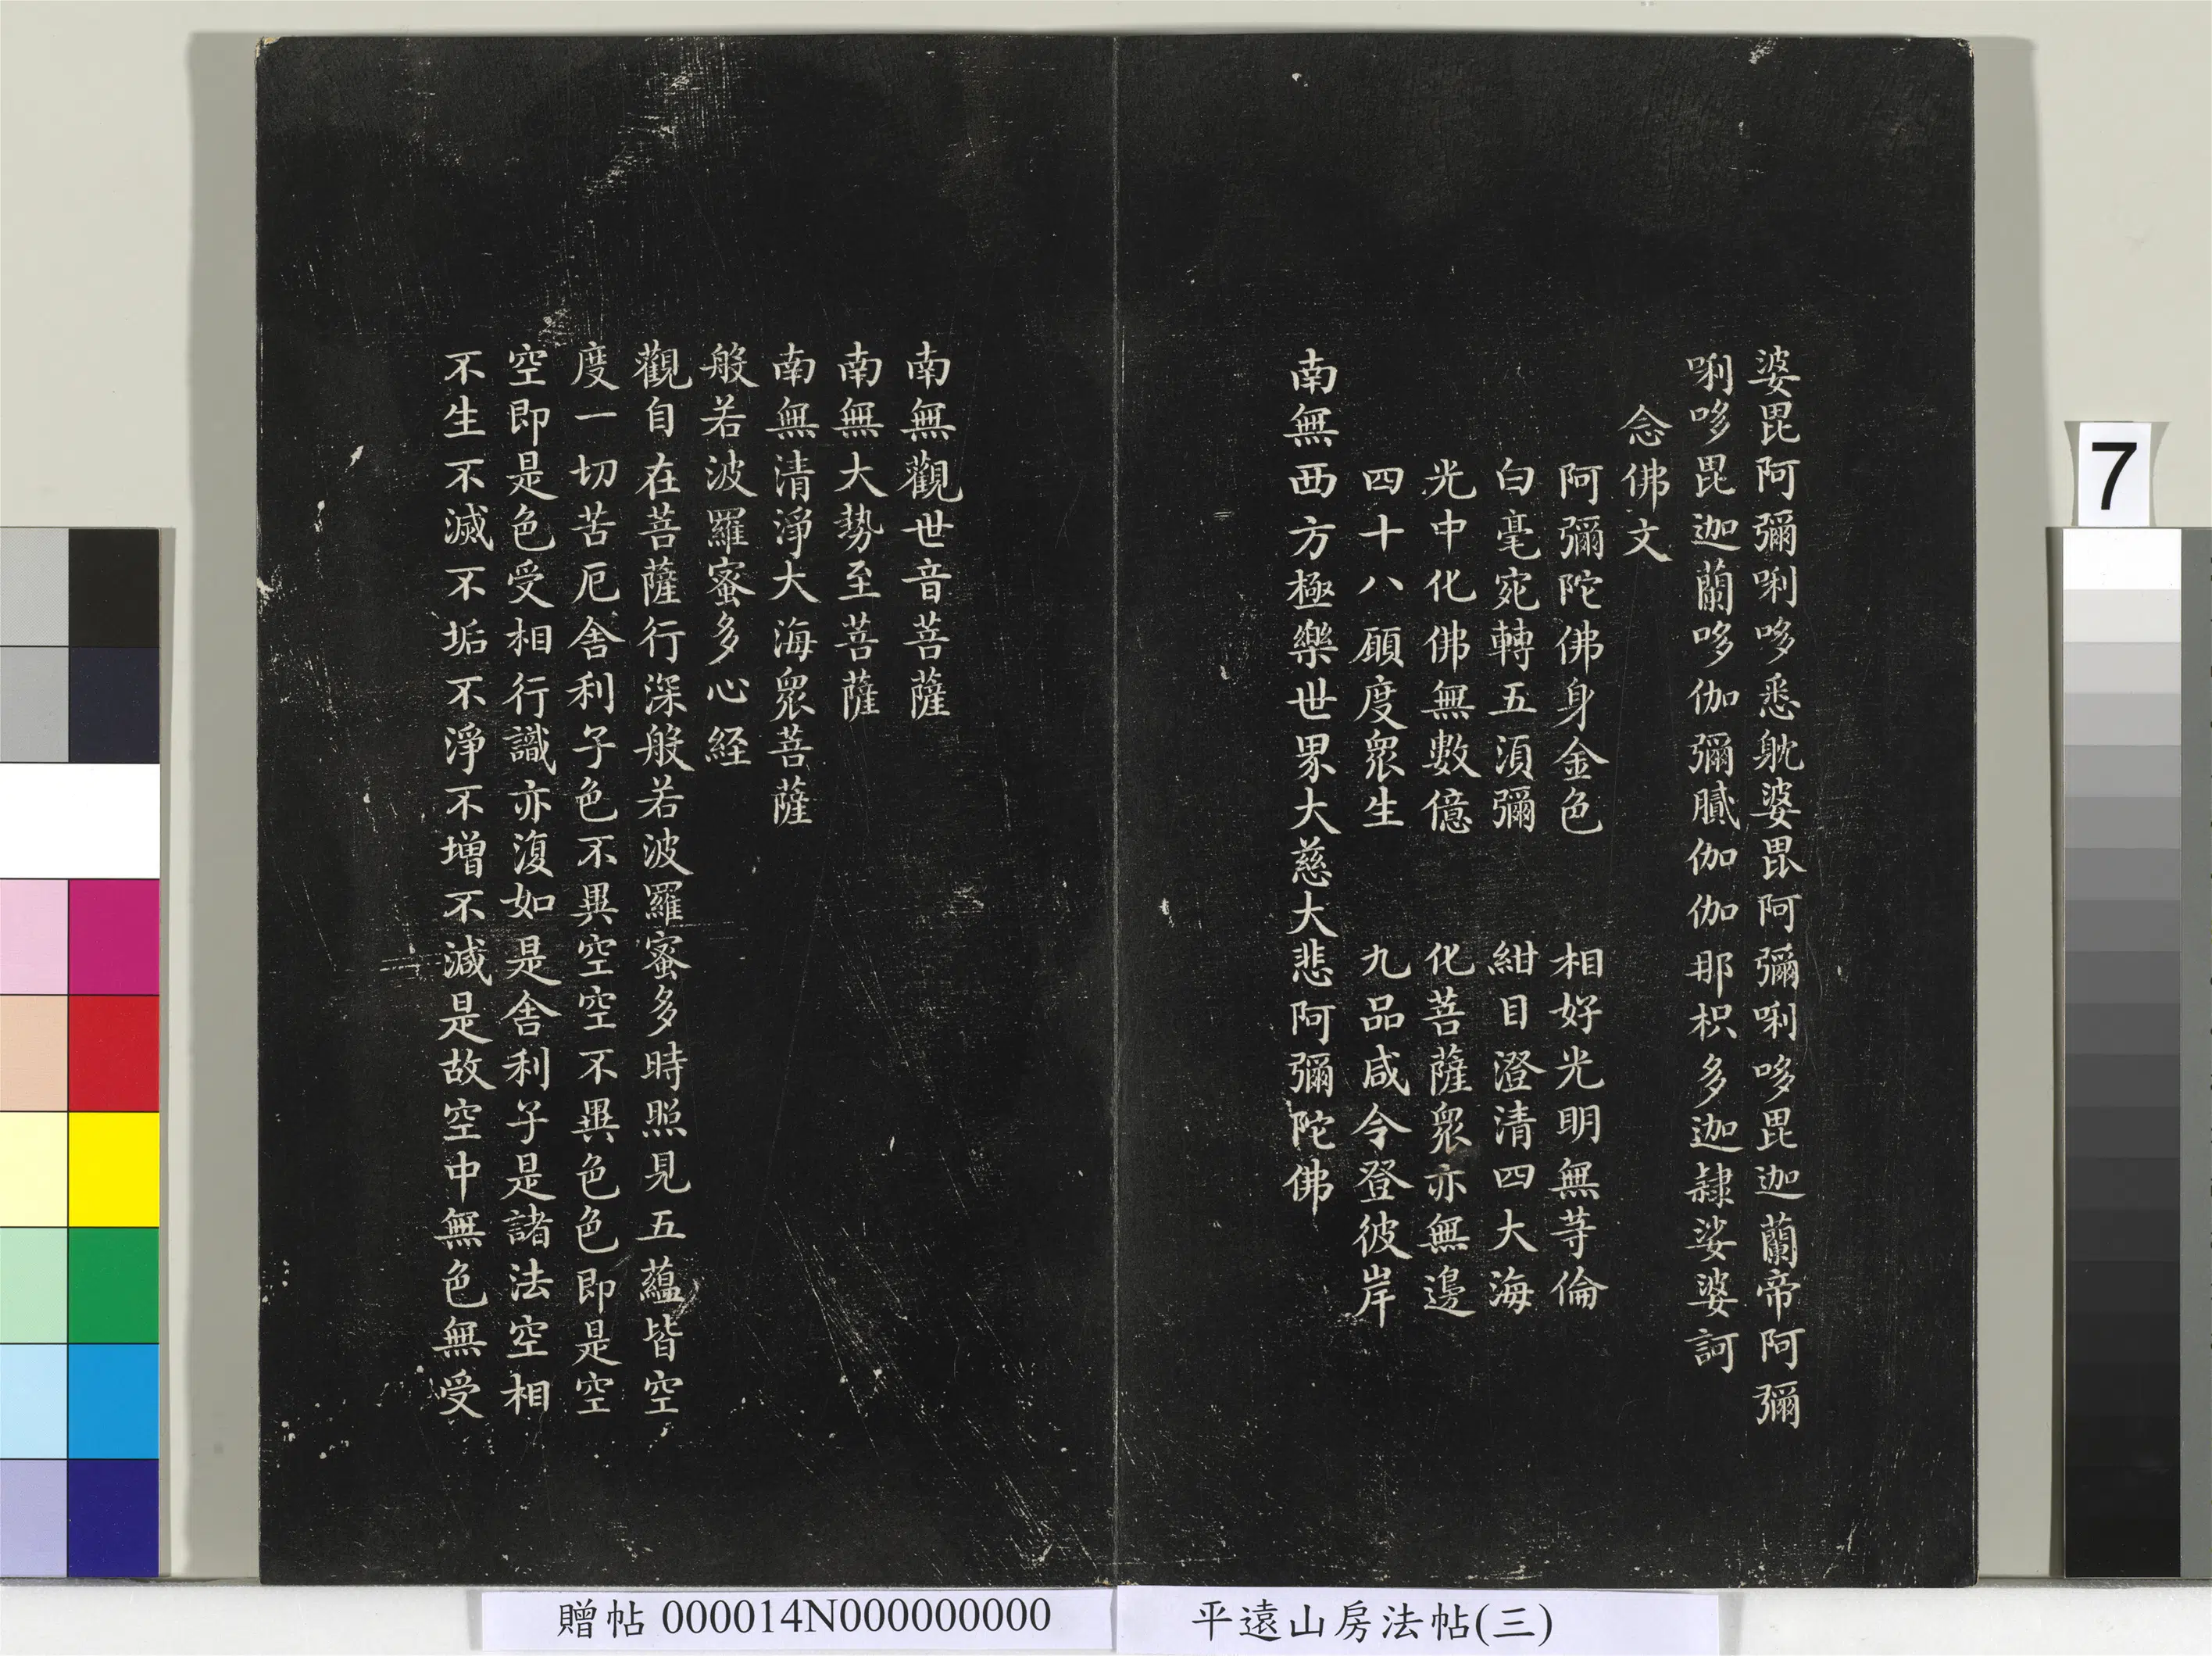 婆毘阿彌唎哆悉躭婆毘阿彌唎哆毘迦蘭帝阿彌
唎哆毘迦蘭哆伽彌膩伽伽那枳多迦隸娑婆訶
念佛文
阿彌陀佛身金色 相好光明無等倫
白毫宛轉五須彌 紺目澄清四大海
光中化佛無數億 化菩薩衆亦無邊
四十八願度衆生 九品咸令登彼岸
南無西方極樂世界大慈大悲阿彌陀佛
南無觀世音菩薩
南無大勢至菩薩
南無清淨大海衆菩薩
般若波羅蜜多心経
觀自在菩薩行深般若波羅蜜多時照見五蘊皆空
度一切苦厄舍利子色不異空空不異色色即是空
空即是色受想行識亦復如是舍利子是諸法空相
不生不滅不垢不淨不增不減是故空中無色無受
7
贈帖 000014N000000000
平遠山房法帖(三)